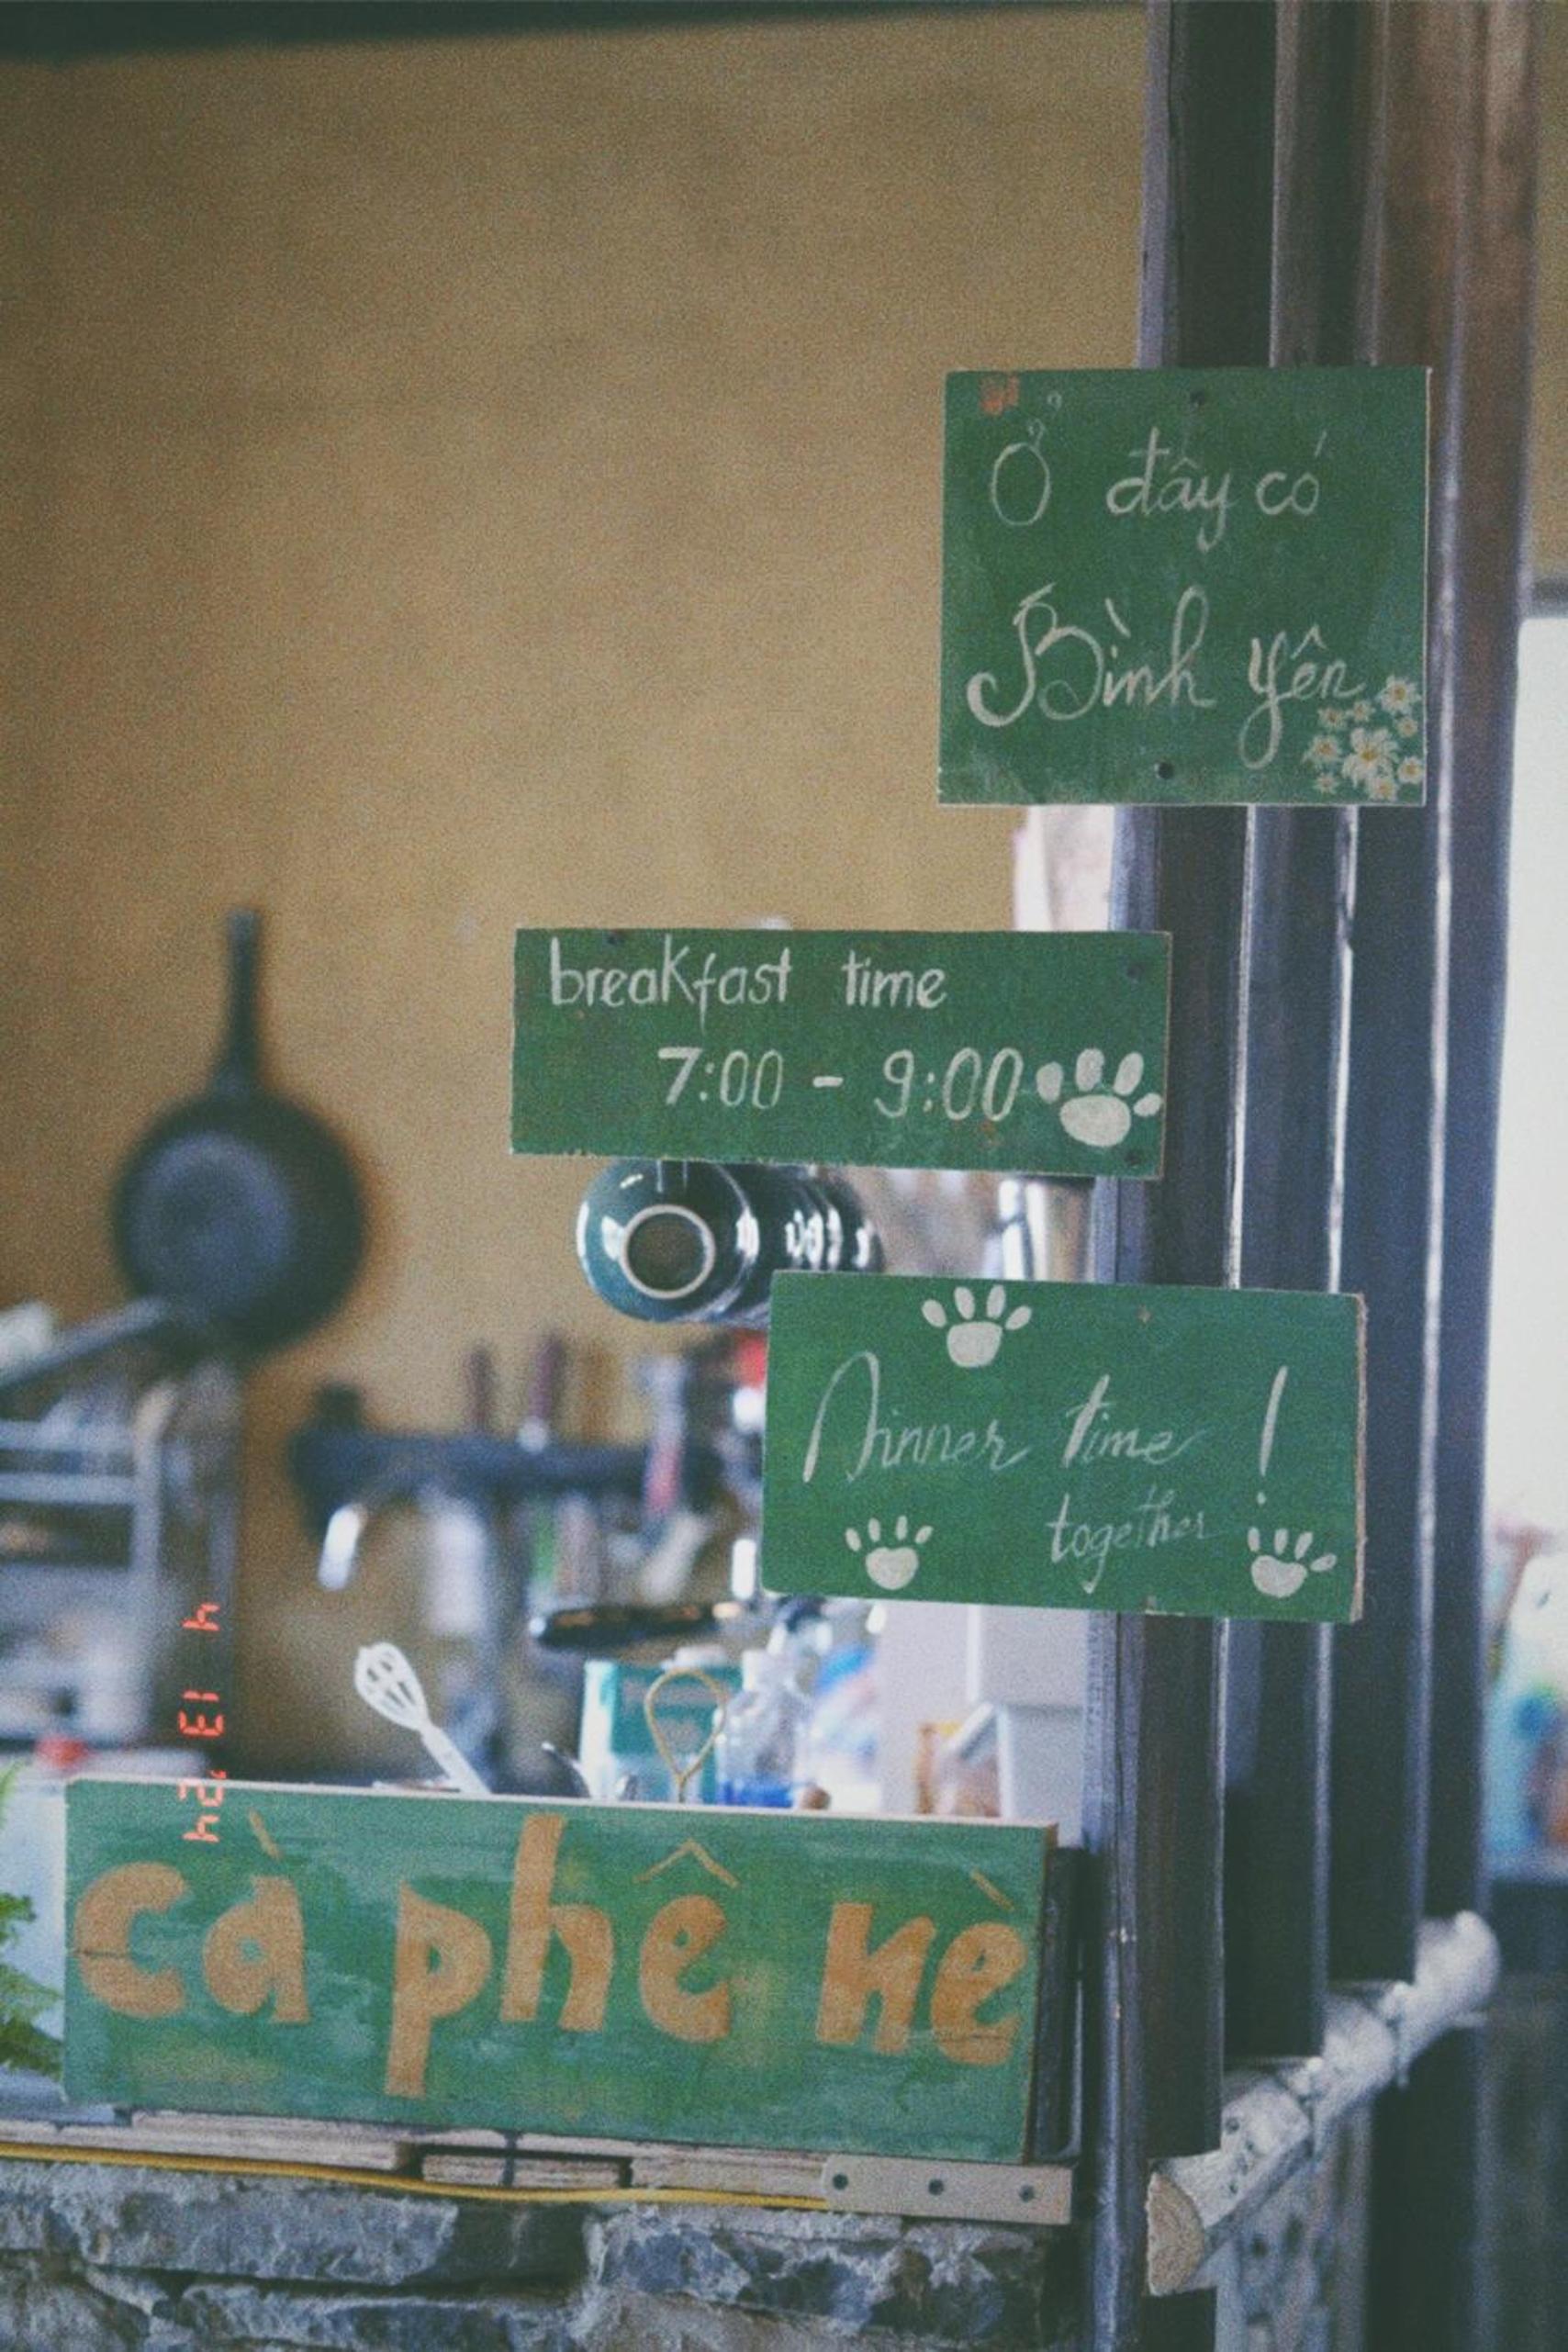 Ở đây có
Bình yên
breakfast time
7:00 - 9:00
Dinner time !
together
cà phê nè
4 13 '24